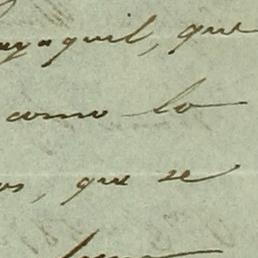 ayaquil, que
como lo
os, que se